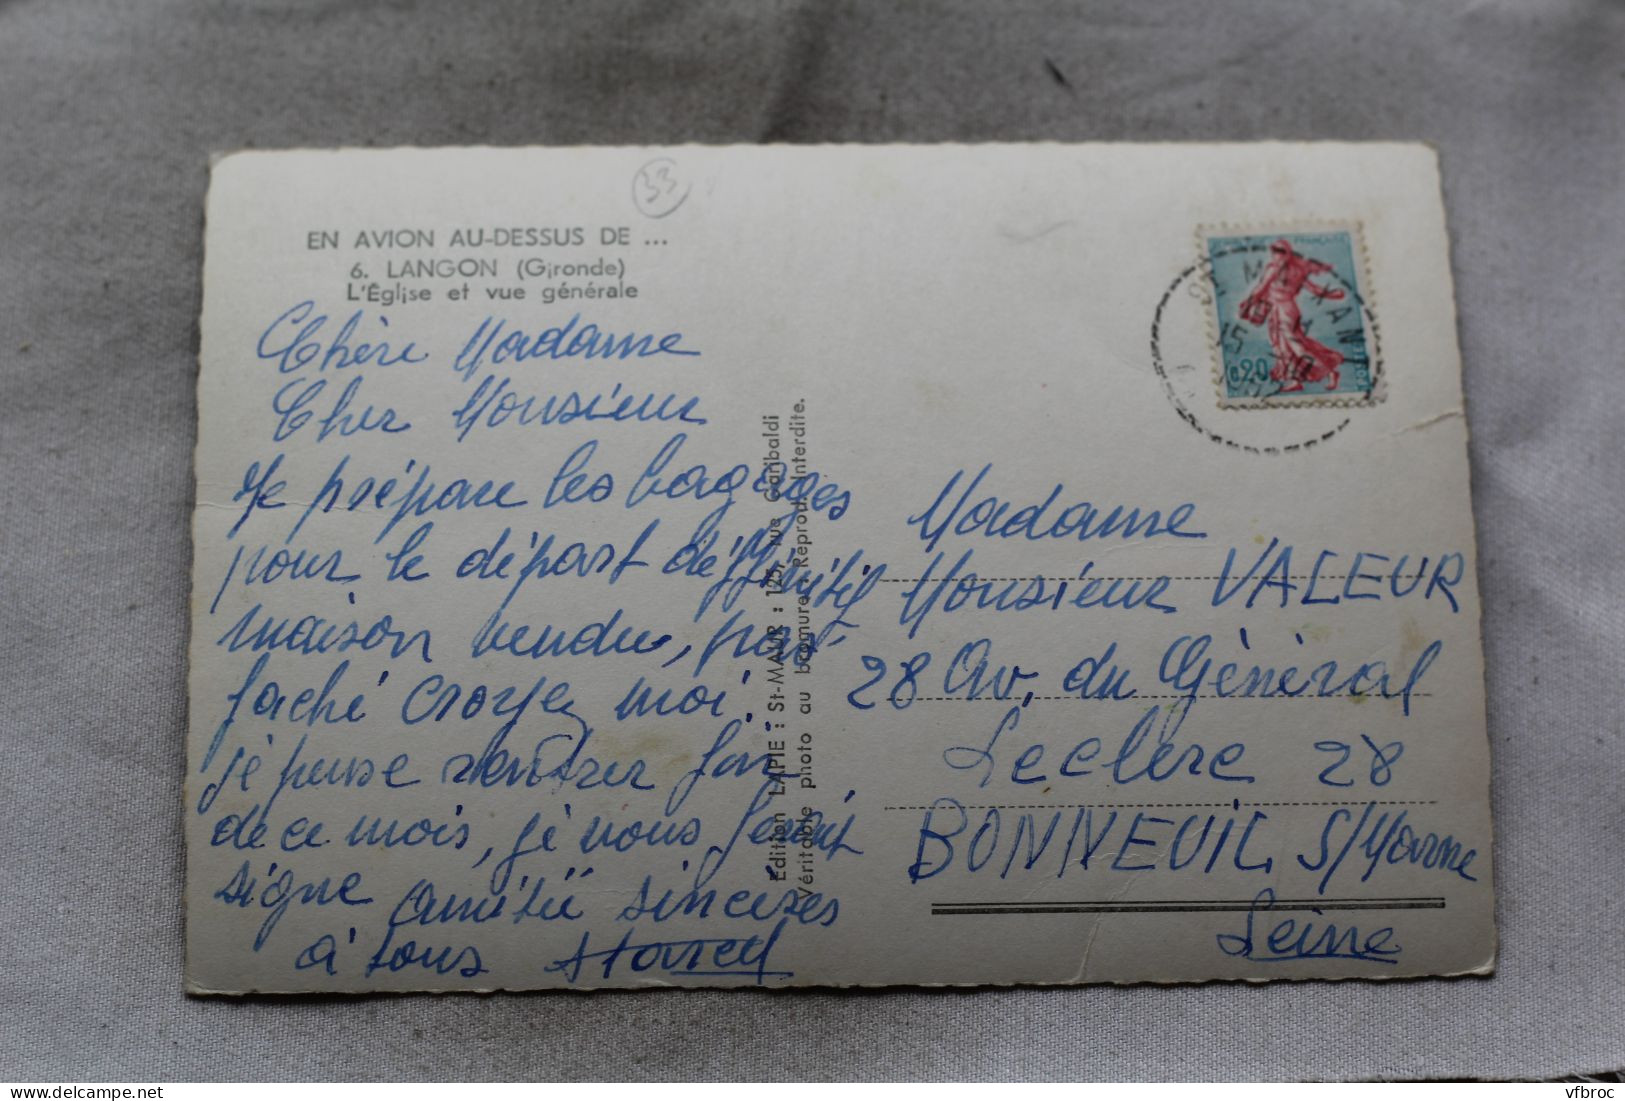 33
EN AVION AU-DESSUS DE ...
6. LANGON (Gironde)
L'Église et vue générale
Chère Madame
Cher Monsieur
Je prépare les bagages
pour le départ définitif
maison vendue, pas
faché croyez moi.
je pense rentrer fin
de ce mois, je vous ferait
signe amitié sincères
à tous Marcel
Edition LAPIE : St-MAUR : 125, rue Garibaldi
Véritable photo au bromure. Reprod. Interdite.
MAIXANT
15
0.20
Madame
Monsieur VALEUR
28 Av. du Général
Leclerc 28
BONNEUIL S/Marne
Seine
vfbroc